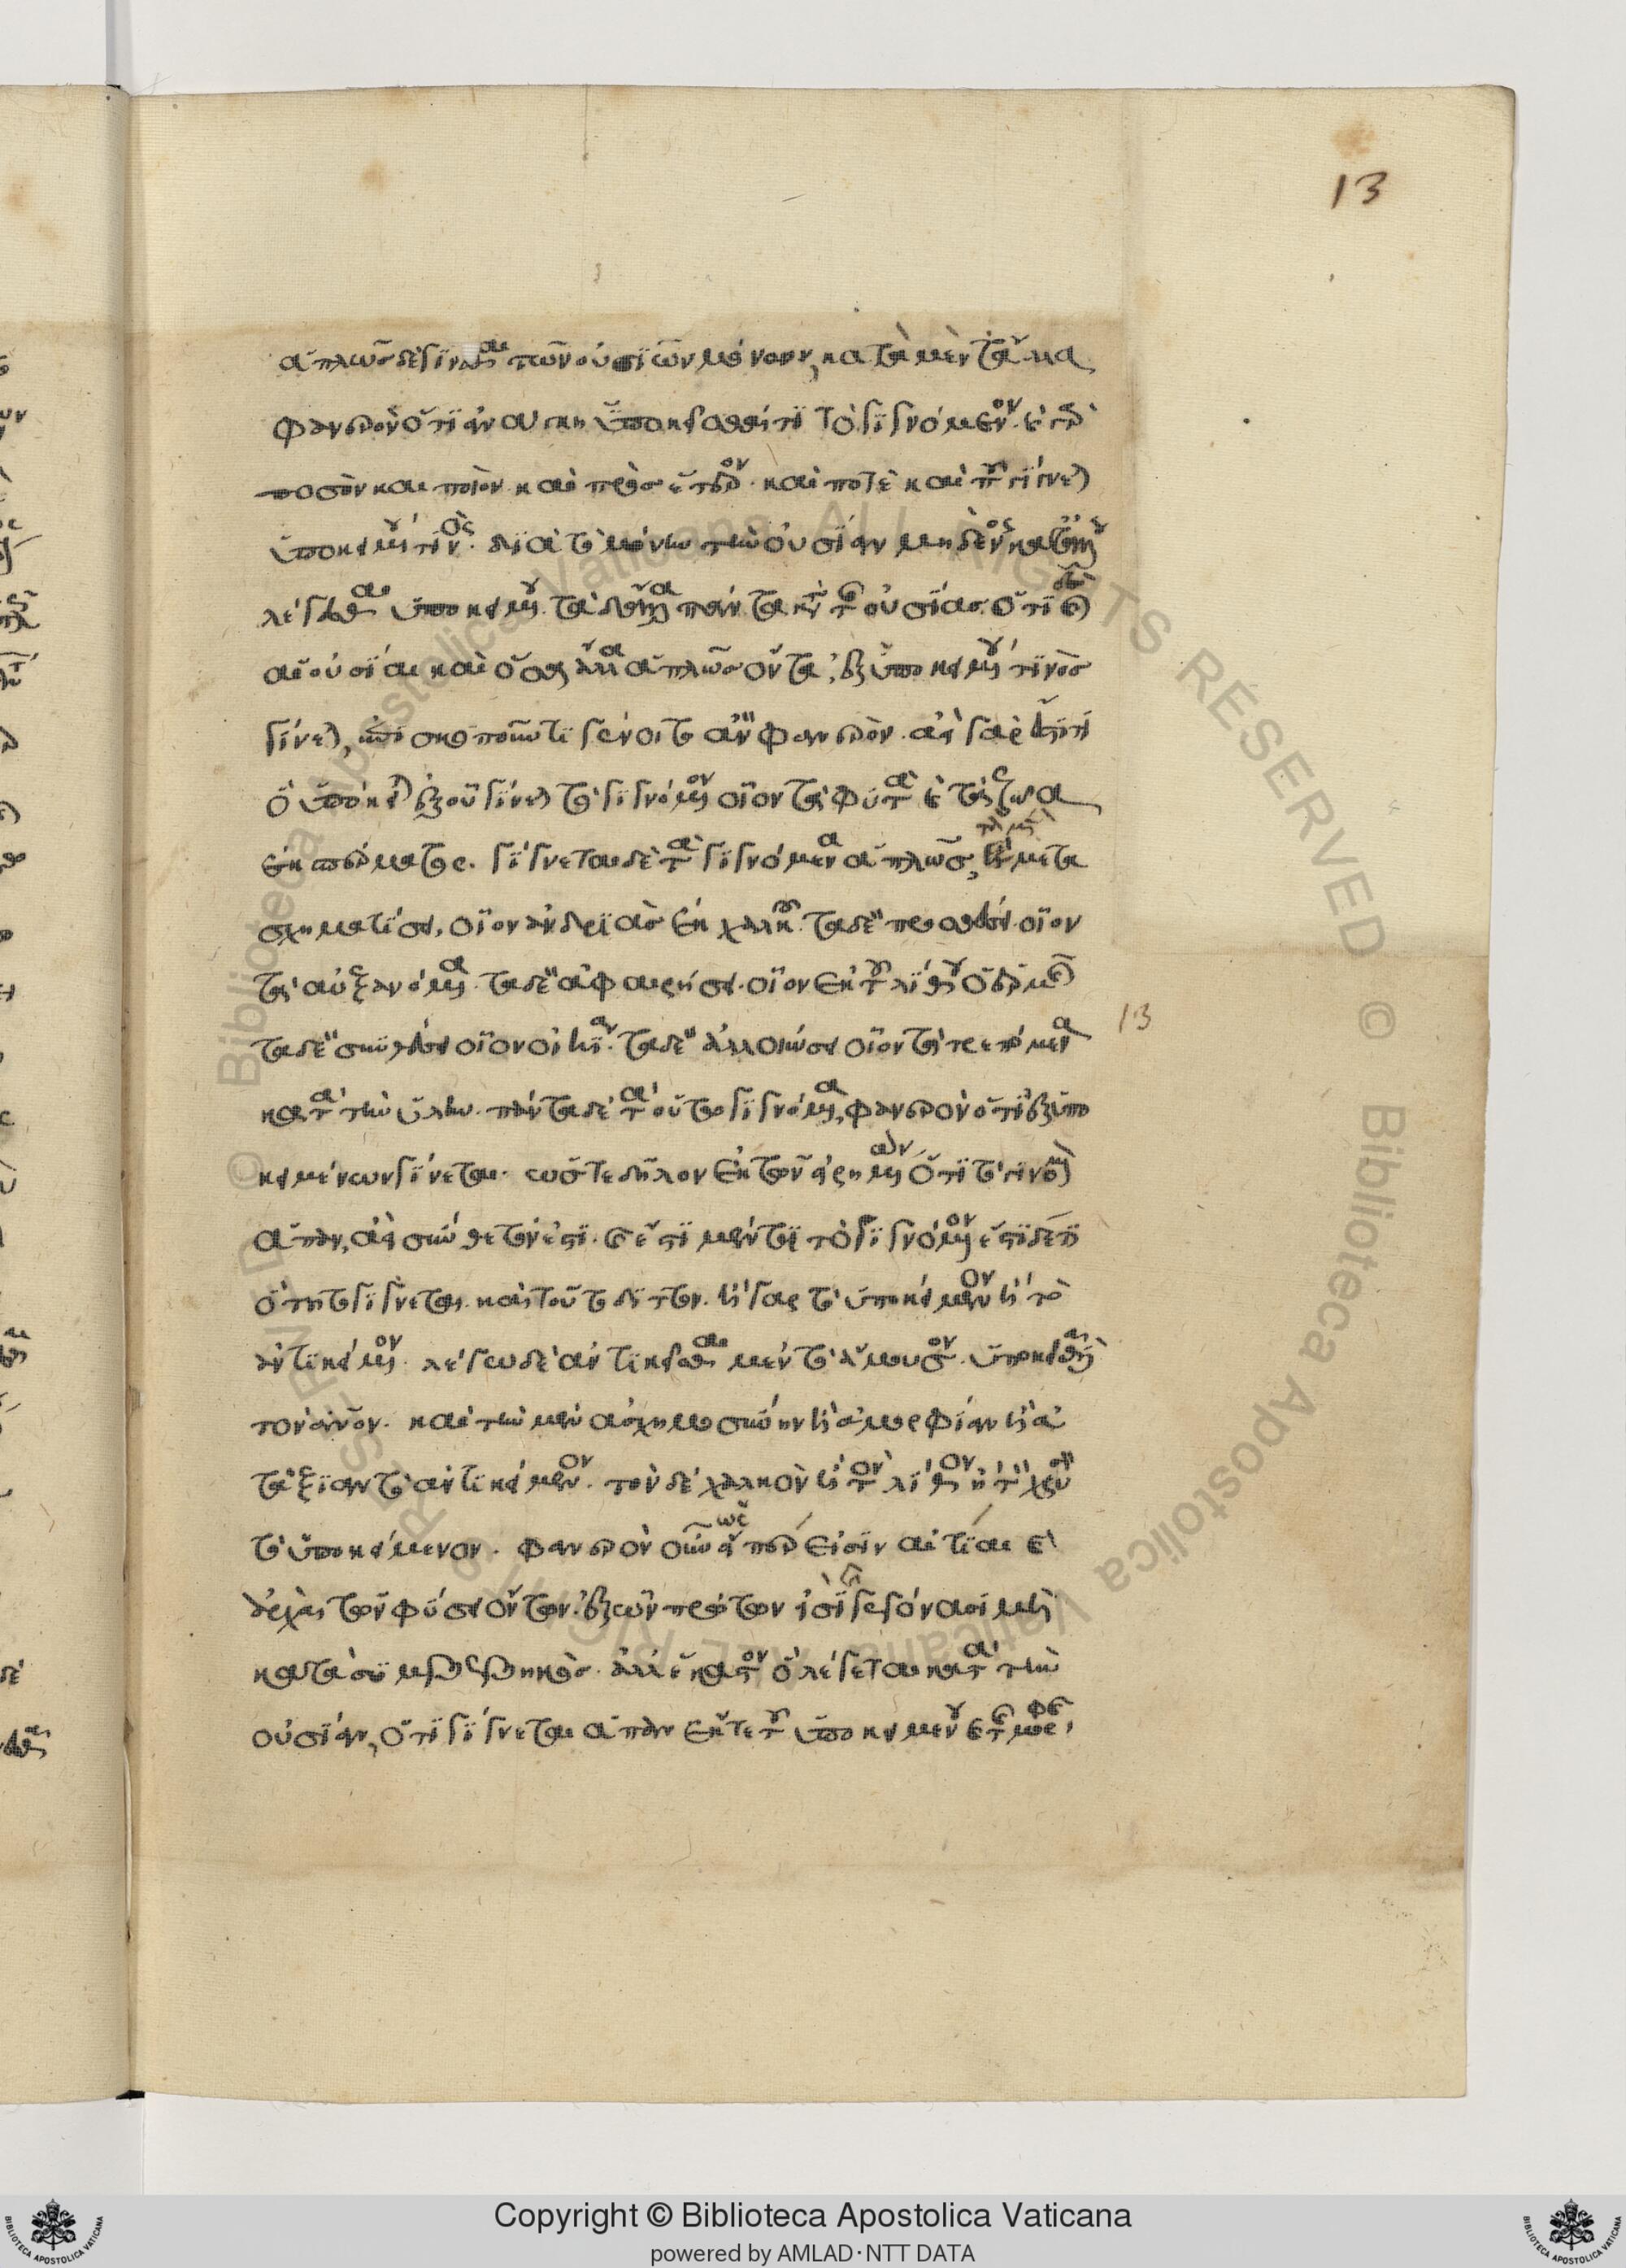 13
ἁπλῶς δὲ γίνεσθαι τῶν οὐσιῶν μόνον, κατὰ μὲν τἆλλα
φανερὸν ὅτι ἀνάγκη ὑποκεῖσθαί τι τὸ γιγνόμενον. καὶ γὰρ
ποσὸν καὶ ποιὸν καὶ πρὸς ἕτερον. καὶ ποτὲ καὶ ποῦ γίνεται
ὑποκειμένου τινός. διὰ τὸ μόνην τὴν οὐσίαν μηδενὸς κατ' ἄλλου
λέγεσθαι ὑποκειμένου. τὰ δ' ἄλλα πάντα κατὰ τῆς οὐσίας. ὅτι δὲ καὶ
αἱ οὐσίαι καὶ ὅσα ἄλλα ἁπλῶς ὄντα, ἐξ ὑποκειμένου τινὸς
γίνεται, ἐπισκοποῦντι γένοιτο ἂν φανερόν. ἀεὶ γὰρ ἔστι τι
ὃ ὑπόκειται ἐξ οὗ γίνεται τὸ γιγνόμενον οἷον τὰ φυτὰ καὶ τὰ ζῶα
ἐκ σπέρματος. γίγνεται δὲ τὰ γιγνόμενα ἁπλῶς, τὰ μὲν μετα
σχηματίσει, οἷον ἀνδριὰς ἐκ χαλκοῦ. τὰ δὲ προσθέσει. οἷον
τὰ αὐξανόμενα. τὰ δὲ ἀφαιρέσει. οἷον ἐκ τοῦ λίθου ὁ ἑρμῆς
τὰ δὲ συνθέσει οἷον οἰκία. τὰ δὲ ἀλλοιώσει οἷον τὰ τρεπόμενα
13
κατὰ τὴν ὕλην. πάντα δὲ τὰ οὕτω γιγνόμενα, φανερὸν ὅτι ἐξ ὑπο
κειμένων γίνεται. ὥστε δῆλον ἐκ τῶν εἰρημένων ὅτι τὸ γινόμενον
ἅπαν, ἀεὶ σύνθετόν ἐστι. καὶ ἔστι μέν τι τὸ γιγνόμενον ἔστι δέ τι
ὅ τι τοῦτο γίγνεται. καὶ τοῦτο διττόν. ἢ γὰρ τὸ ὑποκείμενον ἢ τὸ
ἀντικείμενον. λέγω δὲ ἀντικεῖσθαι μὲν τὸ ἄμουσον. ὑποκεῖσθαι δὲ
τὸν ἄνθρωπον. καὶ τὴν μὲν ἀσχημοσύνην ἢ ἀμορφίαν ἢ ἀ
ταξίαν τὸ ἀντικείμενον. τὸν δὲ χαλκὸν ἢ τὸν λίθον ἢ τὸν χρυσὸν
τὸ ὑποκείμενον. φανερὸν οὖν ὡς εἴπερ εἰσὶν αἰτίαι καὶ
ἀρχαὶ τῶν φύσει ὄντων. ἐξ ὧν πρώτων εἰσὶ καὶ γεγόνασι μὴ
κατὰ συμβεβηκὸς. ἀλλ' ἕκαστον ὃ λέγεται κατὰ τὴν
οὐσίαν, ὅτι γίγνεται ἅπαν ἔκ τε τοῦ ὑποκειμένου καὶ τῆς μορφῆς,